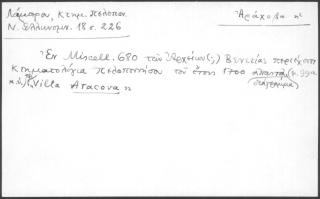 Λάμπρου, Κτημ. Πελοπον. Ἀράχοβα η
Ν. Ἑλληνομν. 18 σ. 226
Ἐν Miscell. 680 τῶν Ἀρχείων (;) Βενετίας περιέχεται
Κτηματολόγια Πελοποννήσου τοῦ ἔτους 1700 ἀπαντᾷ (σ. 99α
Villa Aracova η